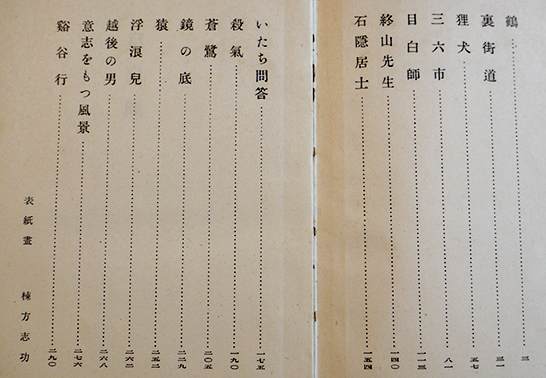 鶴 三
裏街道 三一
狸犬 五七
三六市 八一
目白師 一一三
終山先生 一四〇
石隠居士 一五四
いたち問答 一七五
殺氣 一九〇
蒼鷺 二〇五
鏡の底 二二九
猿 二五二
浮浪兒 二六二
越後の男 二六八
意志をもつ風景 二七六
谿谷行 二九〇
表紙畫 棟方志功